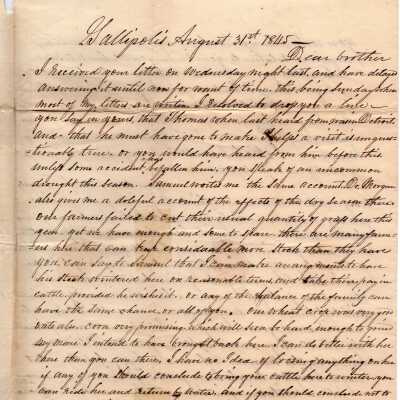 Gallipolis August 31st 1845 –
Dear brother
I received your letter on Wednesday night last, and have delayed
answering it until now for want of time, this being Sunday when
most of my letters are written I resolved to drop you a line –
you say in yours, that Thomas when last heard from was in Detroit,
and that he must have gone to make a visit is unques-
tionable true, or you would have heard from him before this
unless some accident has befallen him, you speak of an uncommon
drought this season. Samuel writes me the same account, De Morgan
also gives me a doleful account of the effects of the dry season there
Our farmers failed to cut their usual quantity of grass here this
year yet we have enough and some to spare. there are many farm-
ers here that can keep considerable more stock than they have
you can say to Samuel that I can make arrangements to have
his stock wintered here on reasonable terms and take their pay in
cattle, provided he wishes it. or any of the balance of the family can
have the same chance, or all of you. Our wheat crop was very
corn very promising, which will soon be hard enough to
I intend to have brought back here I can do better with her
here than you can there, I have no Idea of loosing anything on her
if any of you should conclude to bring your cattle here to winter you
can ride her and return by water, and if you should conclude not to